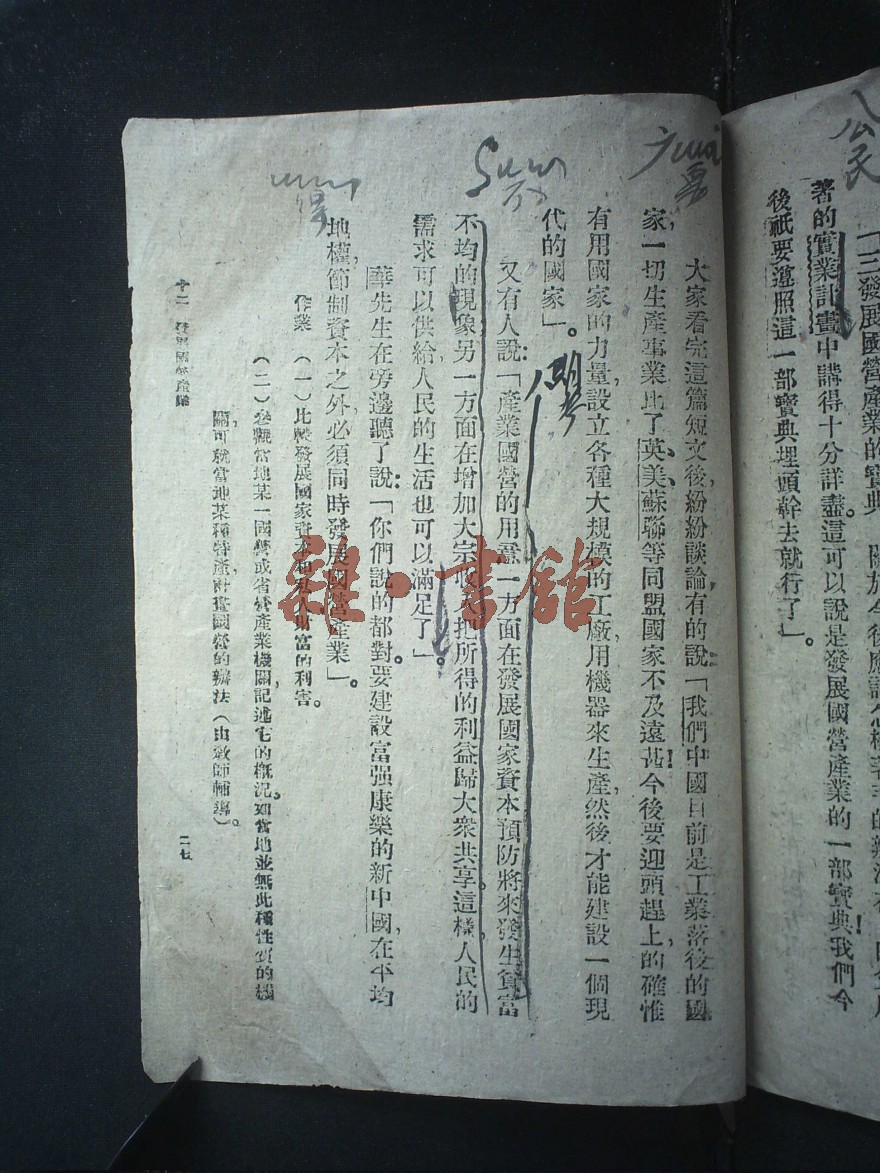 公民
三發展國營產業的寶典
著的實業計畫中講得十分詳盡。這可以說是發展國營產業的一部寶典!我們今
後祇要遵照這一部寶典,埋頭幹去就行了」。
大家看完這篇短文後,紛紛談論,有的說:「我們中國目前是工業落後的國
家,一切生產事業比了英、美、蘇聯等同盟國家不及遠甚!今後要迎頭趕上,的確惟
有用國家的力量,設立各種大規模的工廠,用機器來生產,然後才能建設一個現
代的國家」。
又有人說:「產業國營的用意,一方面在發展國家資本,預防將來發生貧富
不均的現象,另一方面在增加大宗收入,把所得的利益歸大衆共享。這樣,人民的
需求可以供給,人民的生活也可以滿足了」。
華先生在旁邊聽了說:「你們說的都對。要建設富强康樂的新中國,在平均
地權,節制資本之外,必須同時發展國營產業」。
作業 (一)比較發展國家資本和私人財富的利害。
(二)參觀當地某一國營或省營產業機關,記述它的概況。如當地並無此種性質的機
關,可就當地某種特產,討論國營的辦法(由敎師輔導)。
十二 發展國營產業
二七
雜·書館